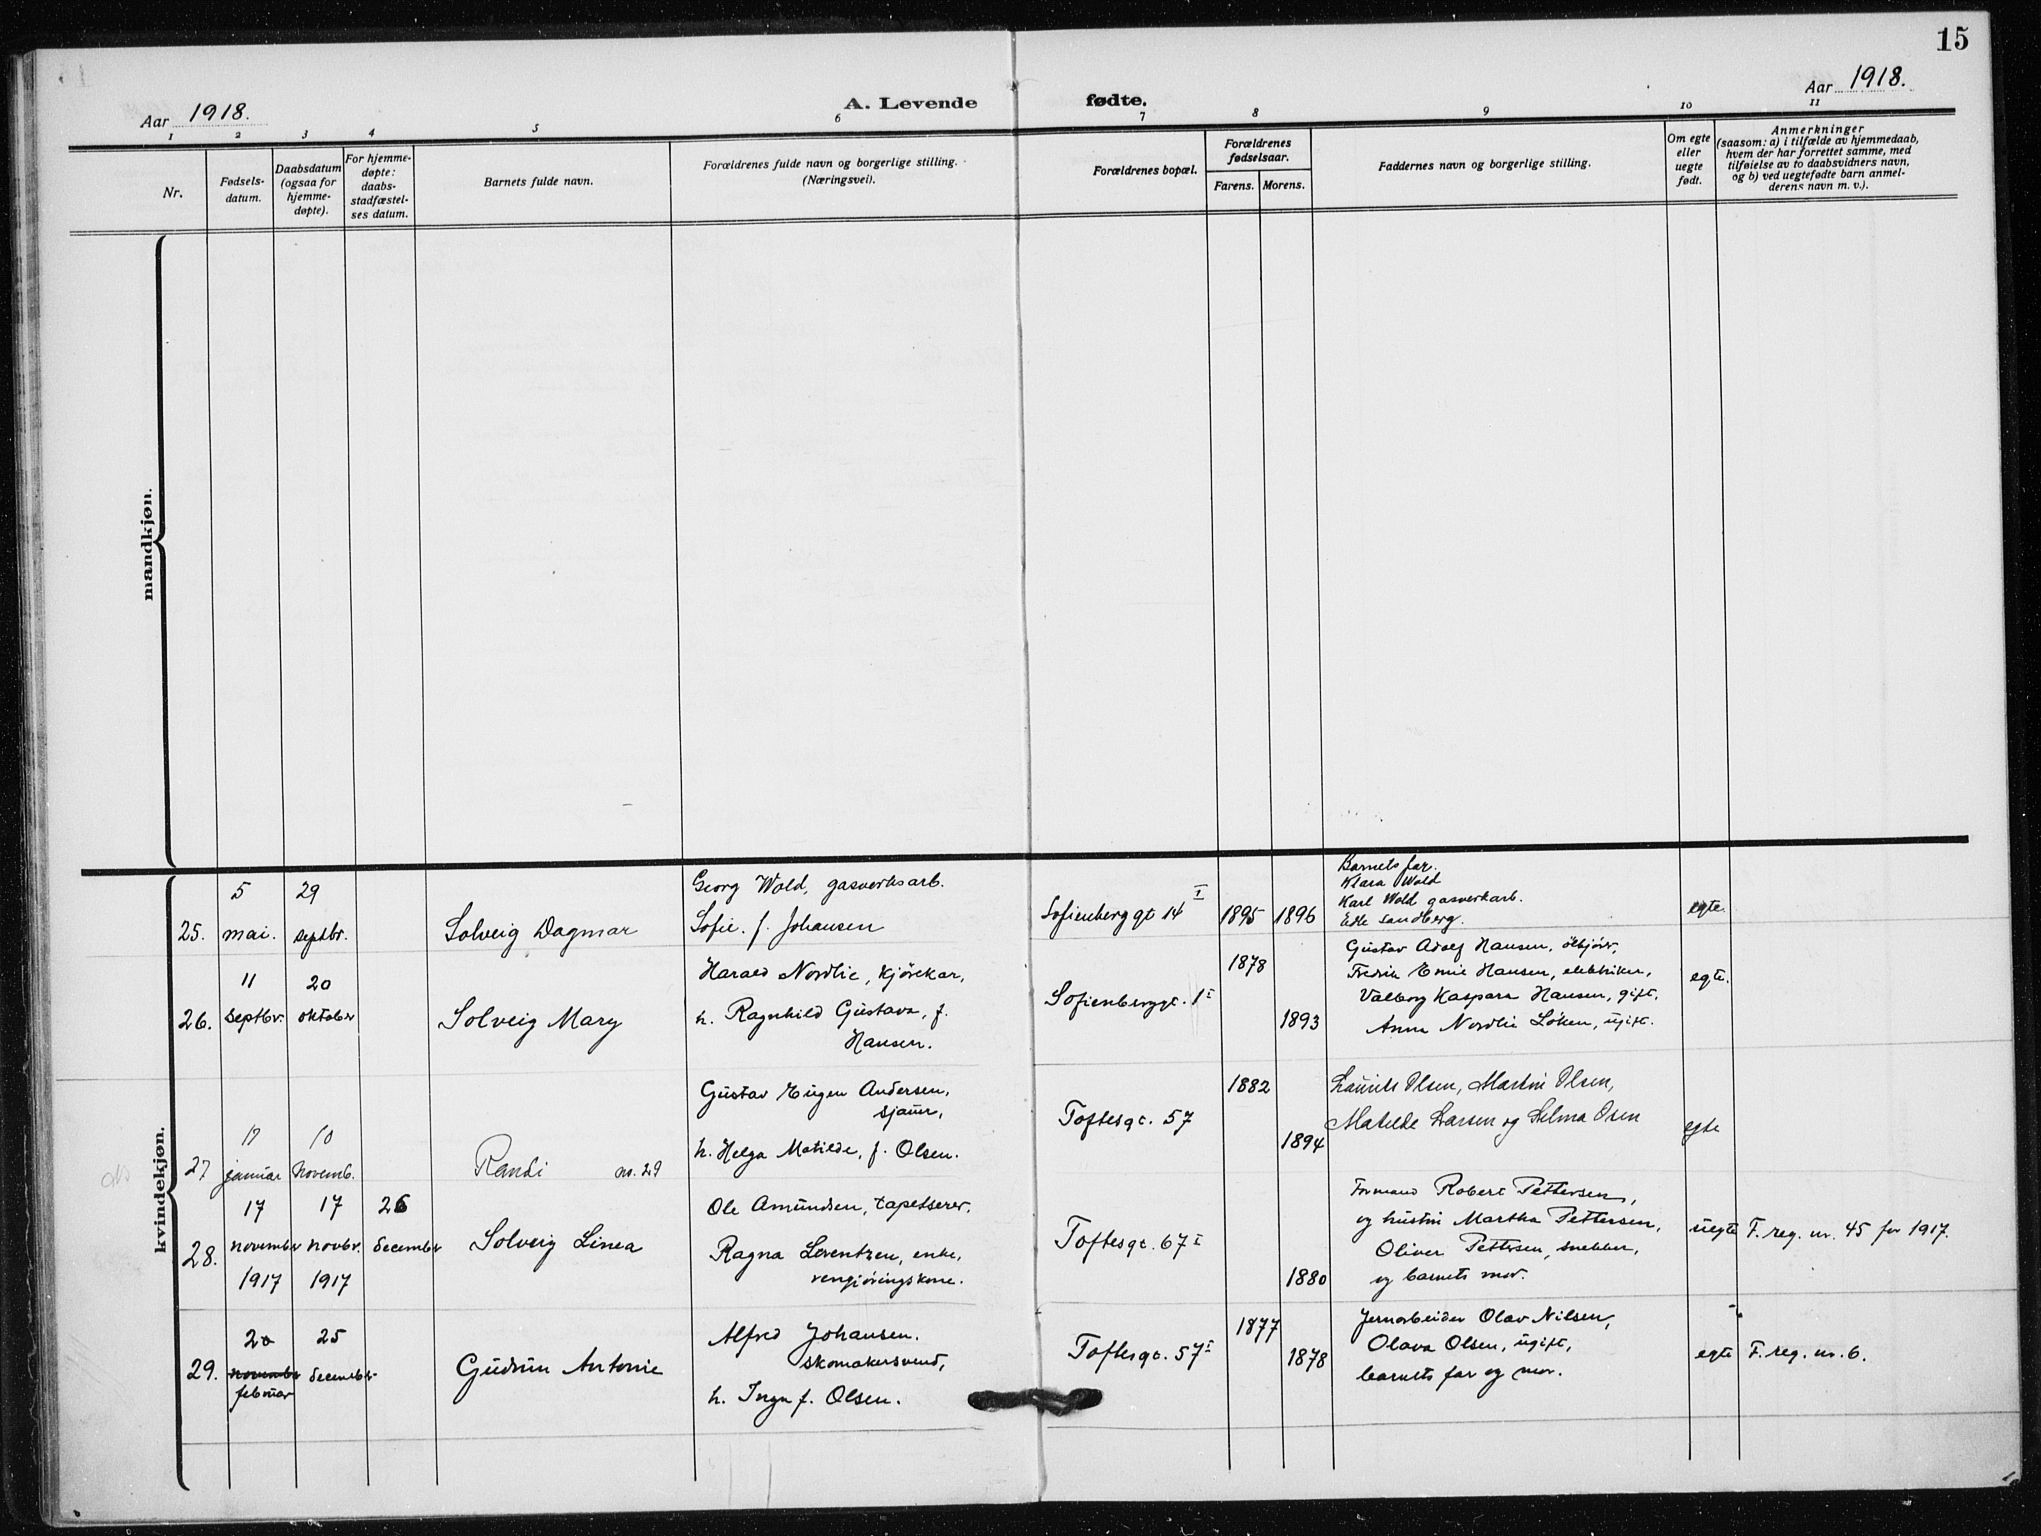 15
Aar 1918.
A. Levende fødte.
Aar 1918.
1 2 3 4 5 6 7 8 9 10 11
Nr.
Fødsels-
datum.
Daabsdatum
(ogsaa for
hjemme-
døpte).
For hjemme-
døpte:
daabs-
stadfæstel-
ses datum.
Barnets fulde navn.
Forældrenes fulde navn og borgerlige stilling.
(Næringsvei).
Forældrenes bopæl.
Forældrenes
fødselsaar.
Farens. Morens.
Faddernes navn og borgerlige stilling.
Om egte
eller
uegte
født.
Anmerkninger
(saasom: a) i tilfælde av hjemmedaab,
hvem der har forrettet samme, med
tilføielse av to daabsvidners navn,
og b) ved uegtefødte barn anmel-
derens navn m. v.).
mandkjøn.
kvindekjøn.
25.
5
mai.
29
septbr.
Solveig Dagmar
Georg Wold, gasverksarb.
Sofie f. Johansen
Sofienberg gt 14 I
1895 1896
Barnets far.
Klara Wold
Karl Wold gasverkarb.
Sandberg.
egte.
26.
11
septbr.
20
oktober
Solveig Mary
Harald Nordlie, kjørekar,
h. Ragnhild Gustava, f.
Hansen.
Sofienberggt. 1 I
1878
1893
Gustav Adolf Hansen,
Fredrik Emil Hansen, elektriker,
Valborg Kaspara Hansen, gift,
Anna Nordlie Løken, ugift.
egte.
27
januar
10
novemb.
Randi no. 29
Gustav Eugen Andersen,
sjauer,
h. Helga Matilde, f. Olsen.
Toftesgt. 57
1882
1894
Laurits Olsen, Martin Olsen,
Matilde Larsen og Selma Osen
egte
28.
17
november
1917
17
novbr.
1917
26
december
Solveig Linea
Ole Amundsen, tapetserer.
Ragna Lorentzen, enke,
rengjøringskone.
Toftesgt. 67 I
1880
Formand Robert Pettersen,
og hustru Martha Pettersen,
Oliver Pettersen, snekker,
og barnets mor.
uegte
F. reg. nr. 45 for 1917.
29.
20
november
februar
25
december
Gudrun Antonie
Alfred Johansen.
skomakersvend,
h. Inga f. Olsen.
Toftesgt. 57 I
1877
1878
Jernarbeider Olav Nilsen,
Olava Olsen, ugift,
barnets far og mor.
egte
F. reg. nr. 6.